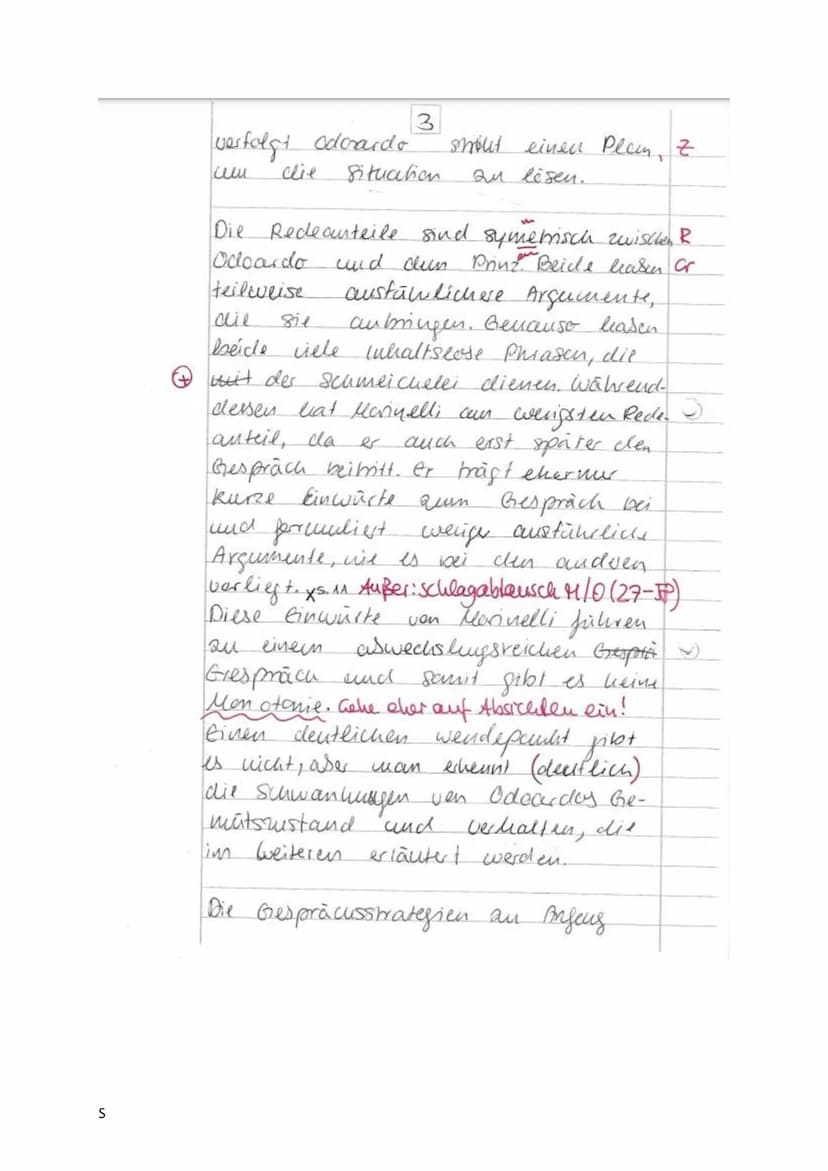 3
verfolgt Odoardo strikt einen Plan, Z
um die Situation zu lösen.
Die Redeanteile sind symetrisch zwischen R
Odoardo und dem Prinz. Beide haben Gr
en
teilweise ausführlichere Argumente,
die sie anbringen. Genauso haben
beide viele inhaltslose Phrasen, die
+ mit der Schmeichelei dienen. Während-
dessen hat Marinelli am wenigsten Rede-
anteil, da er auch erst später den
Gespräch beitritt. Er trägt eher nur
kurze Einwürfe zum Gespräch bei
und formuliert weniger ausführliche
Argumente, wie es bei den anderen
vorliegt. xs.11 Außer: Schlagabtausch M/O (27-)
Diese Einwürfe von Marinelli führen
zu einem abwechslungsreichen Gesprä
Gespräch und somit gibt es keine
Monotonie. Gehe eher auf Absichten ein!
Einen deutlichen Wendepunkt gibt
es nicht, aber man erkennt (deutlich)
die Schwankungen von Odoardos Ge-
mütszustand und Verhalten, die
im Weiteren erläutert werden.
Die Gesprächsstrategien zu Anfang
S